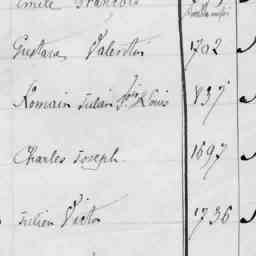 Emile François
Gustave Valentin 1702
Romain Julien Louis 837
Charles Joseph 1697
Julien Victor 1736